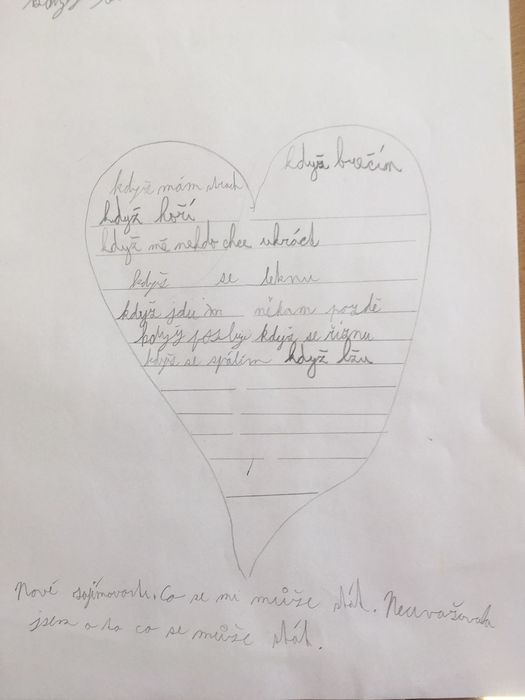 když
když brečím
když mám strach
když hoří
když mě nekdo chce ukrást
když se leknu
když jdu někam pozdě
když když se říznu
když se spálím když lžu
Nové zajímavosti. Co se mi může stát. Neuvažovala
jsem o to co se může stát.